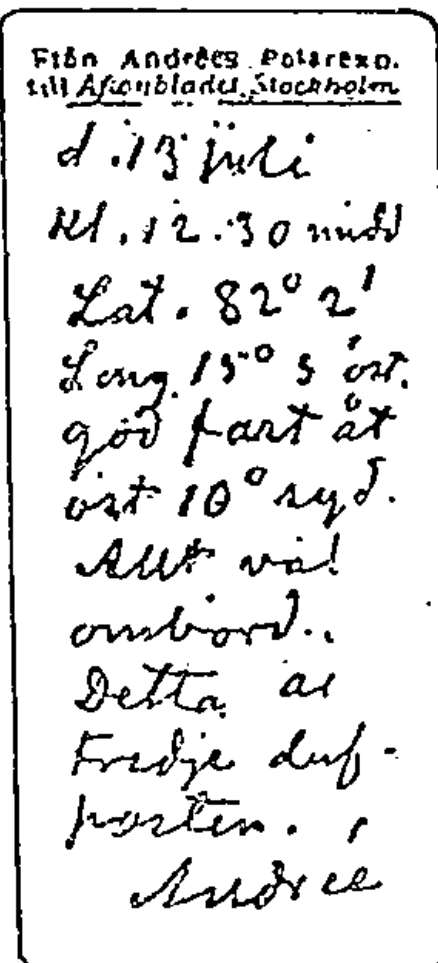 Från Andrées Polarexp.
till Aftonbladet, Stockholm
d. 13 juli
Kl. 12.30 midd
Lat. 82° 2'
Long. 15° 5' öst.
god fart åt
öst 10° syd.
Allt väl
ombord.
Detta är
tredje duf-
posten.
Andrée